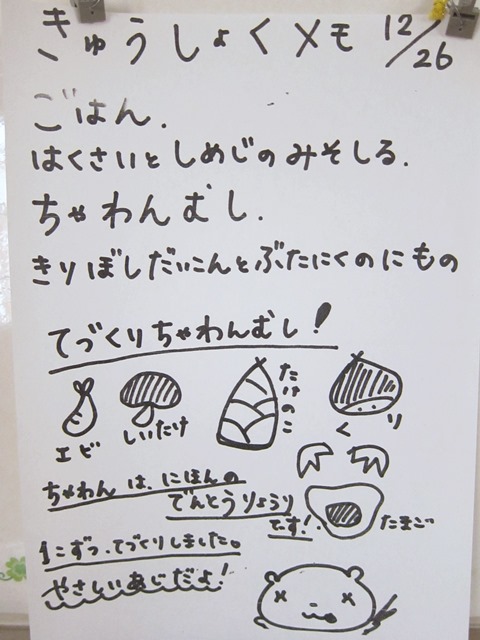 きゅうしょくメモ 12/26
ごはん.
はくさいとしめじのみそしる.
ちゃわんむし.
きりぼしだいこんとぶたにくのにもの
てづくりちゃわんむし!
エビ
しいたけ
たけのこ
くり
ちゃわんは、にほんの
でんとうりょうり
です!
たまご
1こずつ、てづくりしました。
やさしいあじだよ!